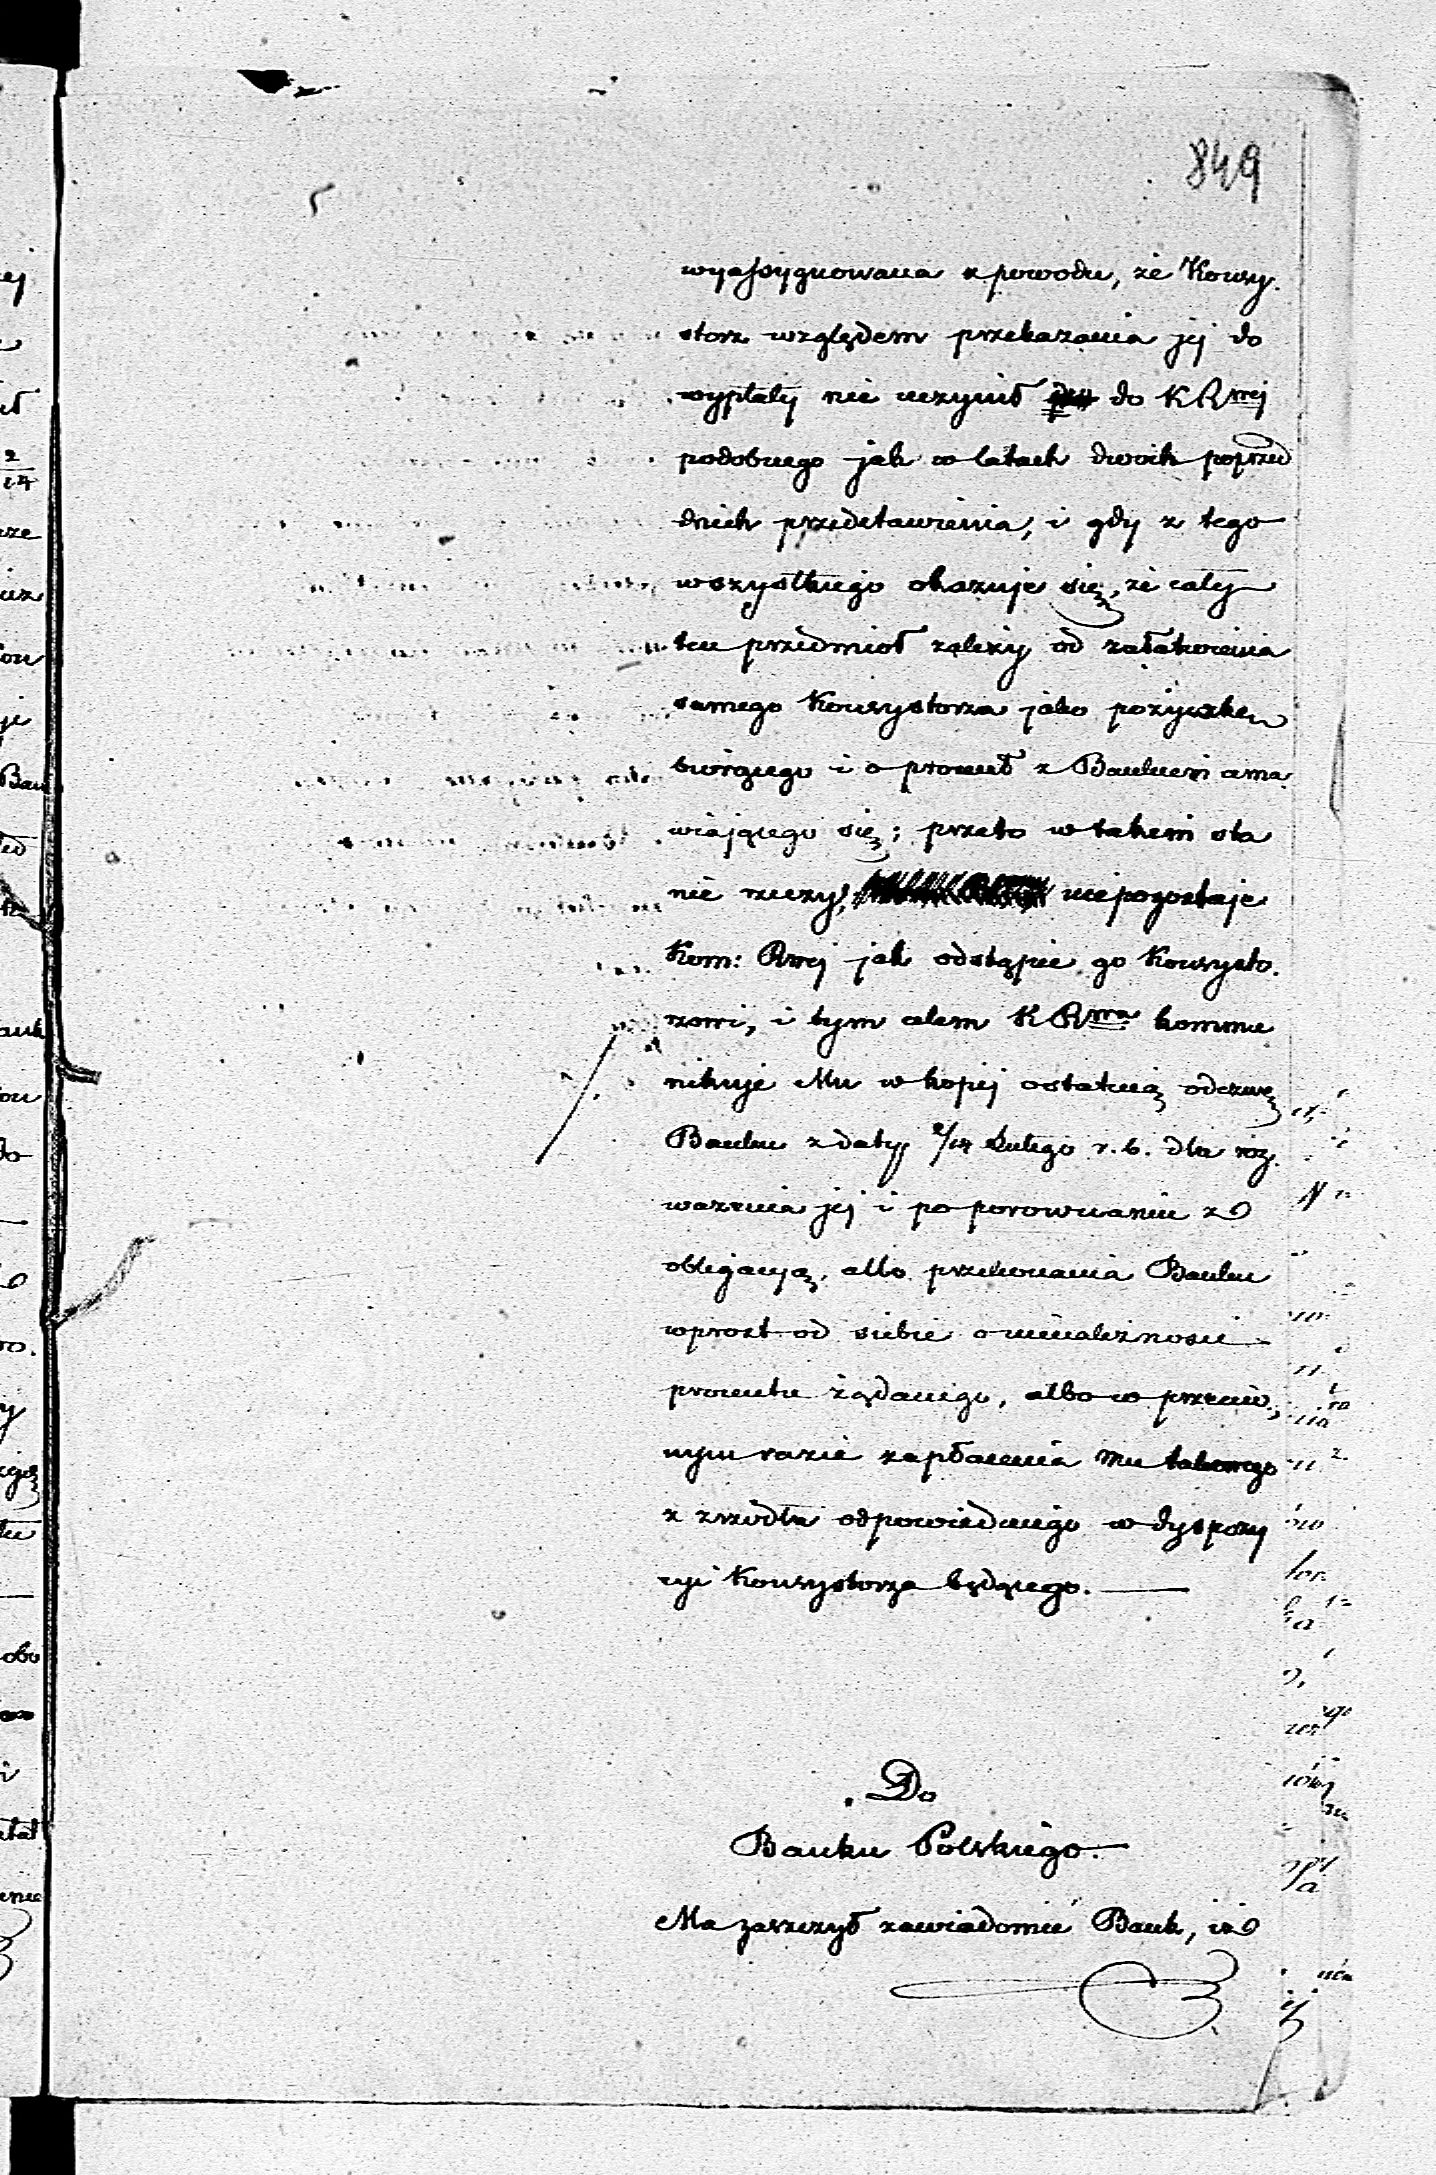 849
wyassygnowana z powodu, że Konsy-
storz względem przekazania jej do
wypłaty nie uczynił do K R mej
podobnego jak w latach dwóch poprzed
dnich przedstawienia, i gdy z tego
wszystkiego okazuje się, że cały
ten przedmiot zależy od załatwienia
samego Konsystorza jako pożyczkę
biorącego i o procent z Bankiem uma-
wiającego się; przeto w takim sta
nie rzeczy, nie pozostaje
Kom: Rwej jak odstąpić go Konsysto-
rzowi, i tym celem K Rwa kommu
nikuje Mu w kopij ostatnią odezwę
Banku z daty 2/14 Lutego r. b. dla roz-
ważenia jej i po porownaniu z
obligacyą, albo przekonania Banku
wprost od siebie o nienależności
procentu żądanego, albo w przeciw-
nym razie zapłacenia mu takowego
z zrzódła odpowiedniego w dyspozy
cyi Konsystorza będącego.
Do
Banku Polskiego.
Ma zaszczyt zawiadomić Bank, iż